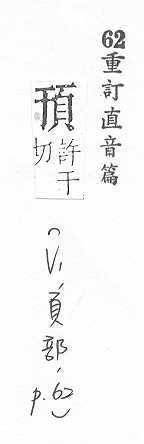 62重訂直音篇
頇
許干
切
(V1,頁部,p.62)